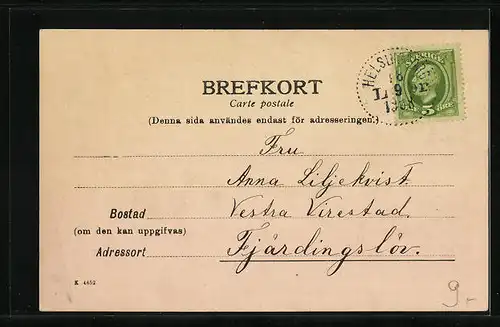 BREFKORT
Carte postale
(Denna sida användes endast för adresseringen.)
SVERIGE
5 ÖRE
Fru
Anna Liljekvist
Bostad Vestra Virestad
(om den kan uppgifvas)
Adressort Fjärdingslöv.
K 4452
9.-